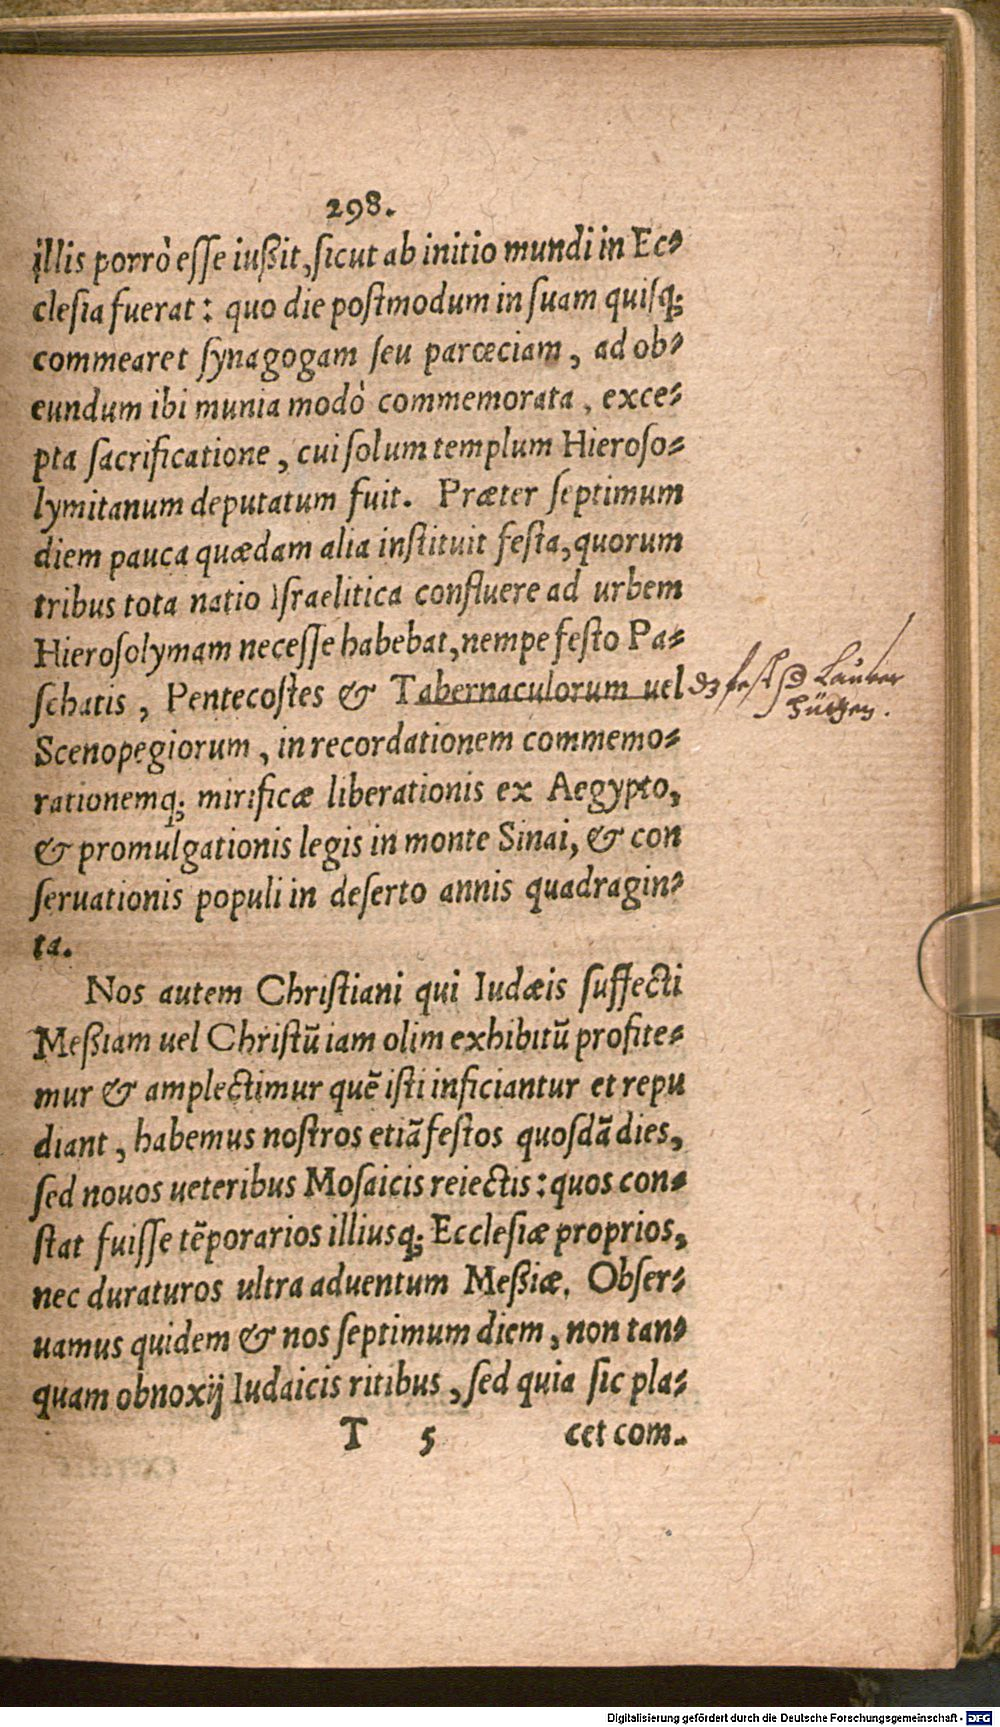 298.
illis porrò eſſe iußit, ſicut ab initio mundi in Ec-
cleſia fuerat: quo die poſtmodum in ſuam quiſq;
commearet ſynagogam ſeu parœciam, ad ob-
eundum ibi munia modò commemorata, exce-
pta ſacrificatione, cui ſolum templum Hieroſo-
lymitanum deputatum fuit. Præter ſeptimum
diem pauca quædam alia inſtituit feſta, quorum
tribus tota natio Iſraelitica confluere ad urbem
Hieroſolymam neceſſe habebat, nempe feſto Pa-
ſchatis, Pentecoſtes & Tabernaculorum uel
Scenopegiorum, in recordationem commemo-
rationemq; mirificæ liberationis ex Aegypto,
& promulgationis legis in monte Sinai, & con
ſeruationis populi in deſerto annis quadragin-
ta.
Nos autem Chriſtiani qui Iudæis ſuffecti
Meßiam uel Chriſtū iam olim exhibitū profite-
mur & amplectimur quē iſti inficiantur et repu
diant, habemus noſtros etiā feſtos quoſdā dies,
ſed nouos ueteribus Moſaicis reiectis: quos con-
ſtat fuiſſe tēporarios illiusq; Eccleſiæ proprios,
nec duraturos ultra aduentum Meßiæ. Obſer-
uamus quidem & nos ſeptimum diem, non tan-
quam obnoxij Iudaicis ritibus, ſed quia ſic pla-
T 5 cet com-
feſt Lauber
hütten.
Digitalisierung gefördert durch die Deutsche Forschungsgemeinschaft - DFG